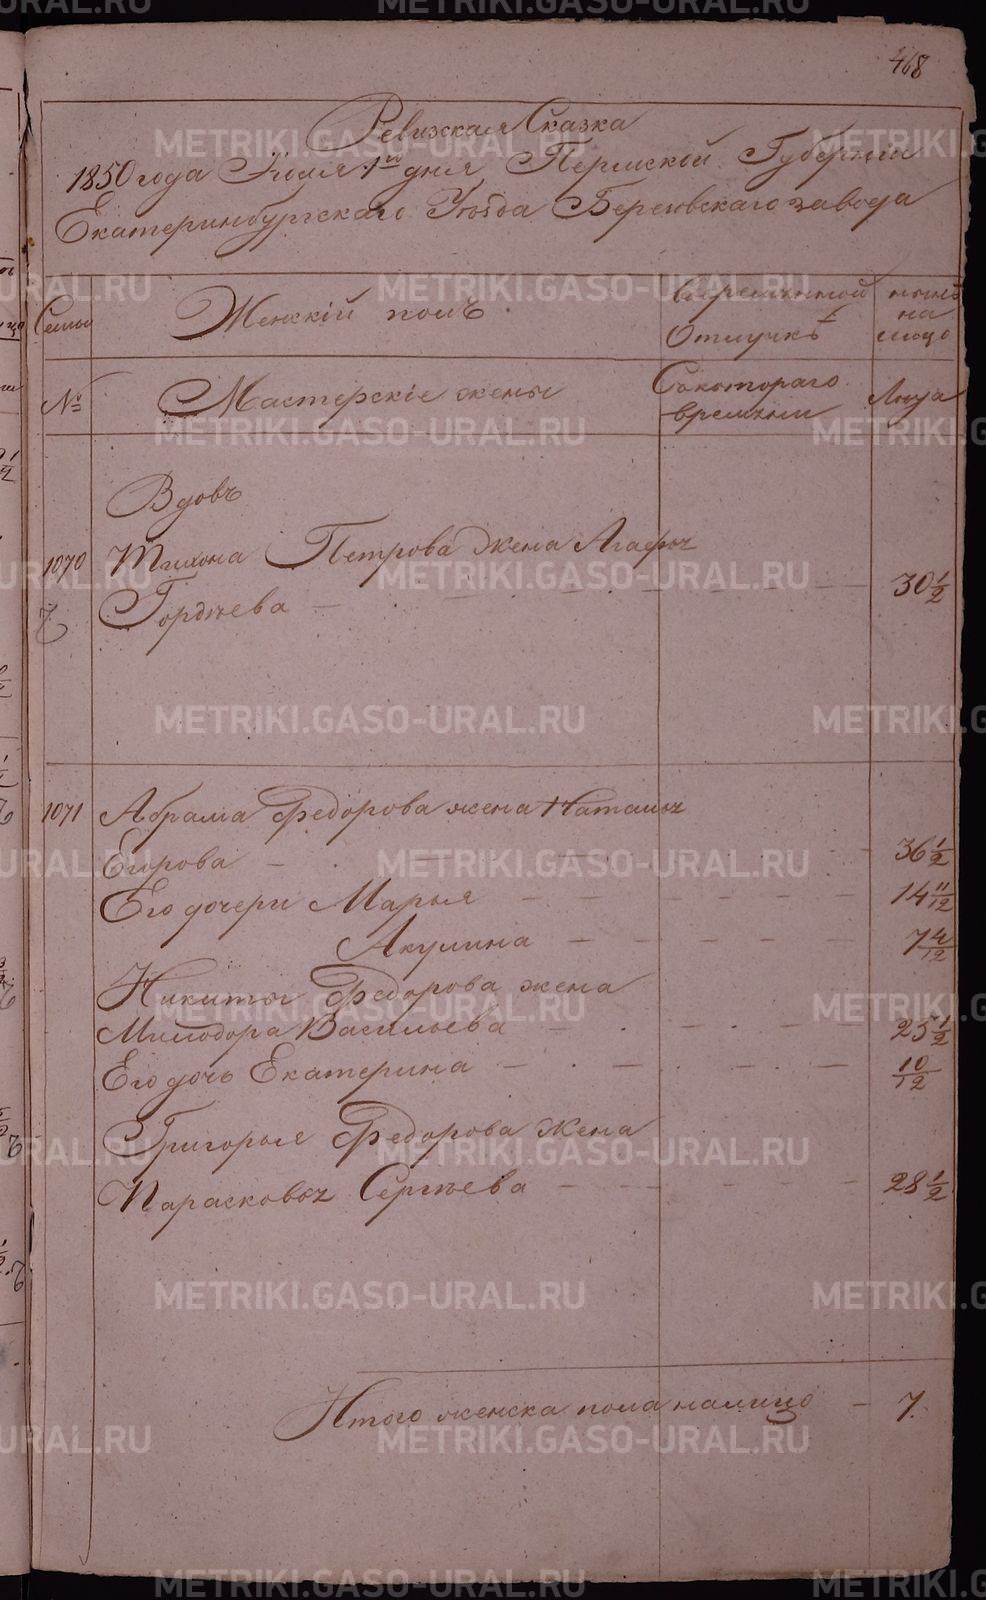 468
Ревизская Сказка
1850 года Июля 1го дня Пермской Губернии
Екатеринбургскаго Уѣзда Березовскаго завода
Семьи
Женскій полъ
Вовременной
Отлучкѣ
нынѣ
на
лицо
№
Мастерскіе жены
Съкотораго
времѣни
Лѣта
Вдовъ
1070 Тихона Петрова жена Агафья
Гордѣева 30 1/2
1071 Абрама Федорова жена Наталья
Егорова 36 1/2
Его дочери Марья 14 11/12
Акулина 7 4/12
Никиты Федорова жена
Милодора Васильева 25 1/2
Его дочь Екатерина 10/12
Григорья Федорова жена
Парасковья Сергѣева 28 1/2
Итого женска пола налицо 7.
METRIKI.GASO-URAL.RU